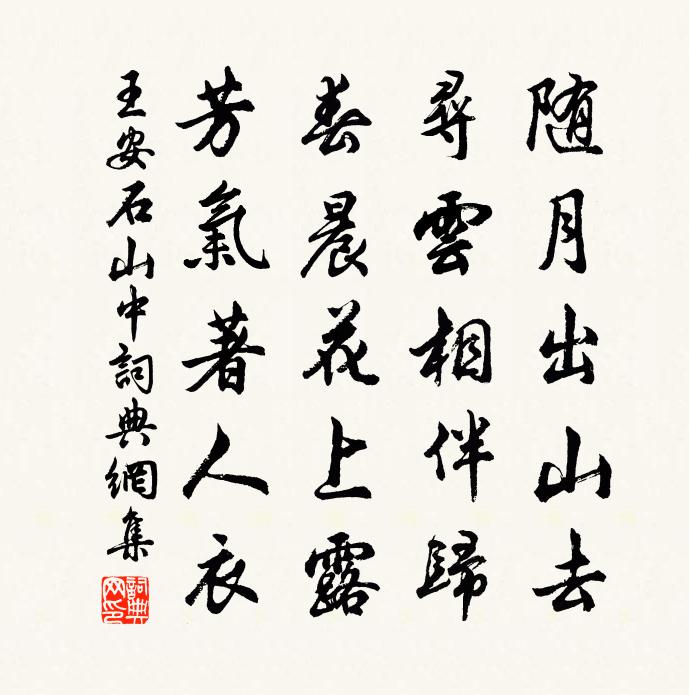 随月出山去
尋雲相伴歸
春晨花上露
芳氣著人衣
王安石山中詞典網集
詞典網印